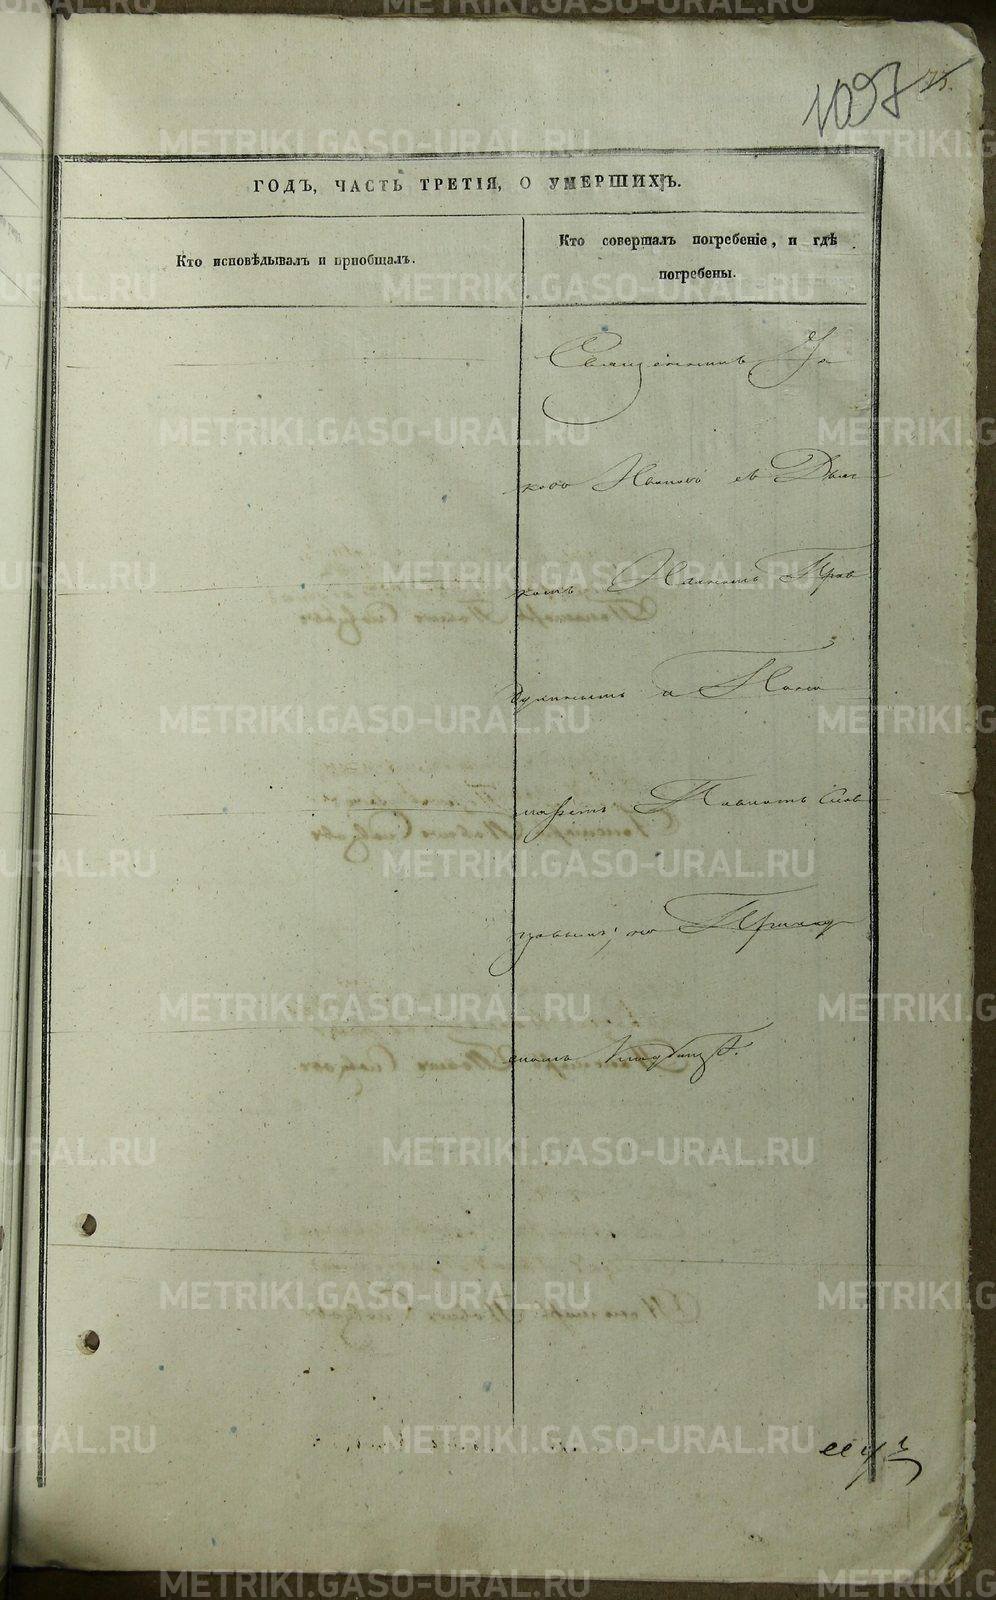 1097 75.
ГОДЪ, ЧАСТЬ ТРЕТІЯ, О УМЕРШИХЪ.
Кто исповѣдывалъ и пріобщалъ.
Кто совершалъ погребеніе, и гдѣ
погребены.
Священникъ Іа
ковъ Ивановъ съ Дьяч
комъ
и Поно
маремъ Павломъ Слов
цовымъ, на Приход
скомъ Кладбищѣ.
METRIKI.GASO-URAL.RU